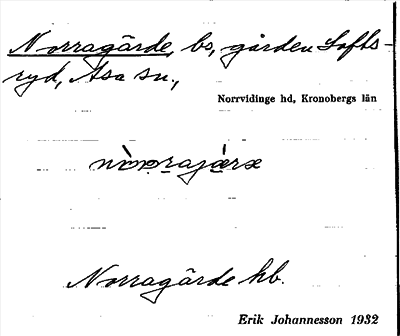 Norragärde, bs, gården Lofts-
ryd, Asa sn.,
Norrvidinge hd, Kronobergs län
Norragärde hb.
Erik Johannesson 1932